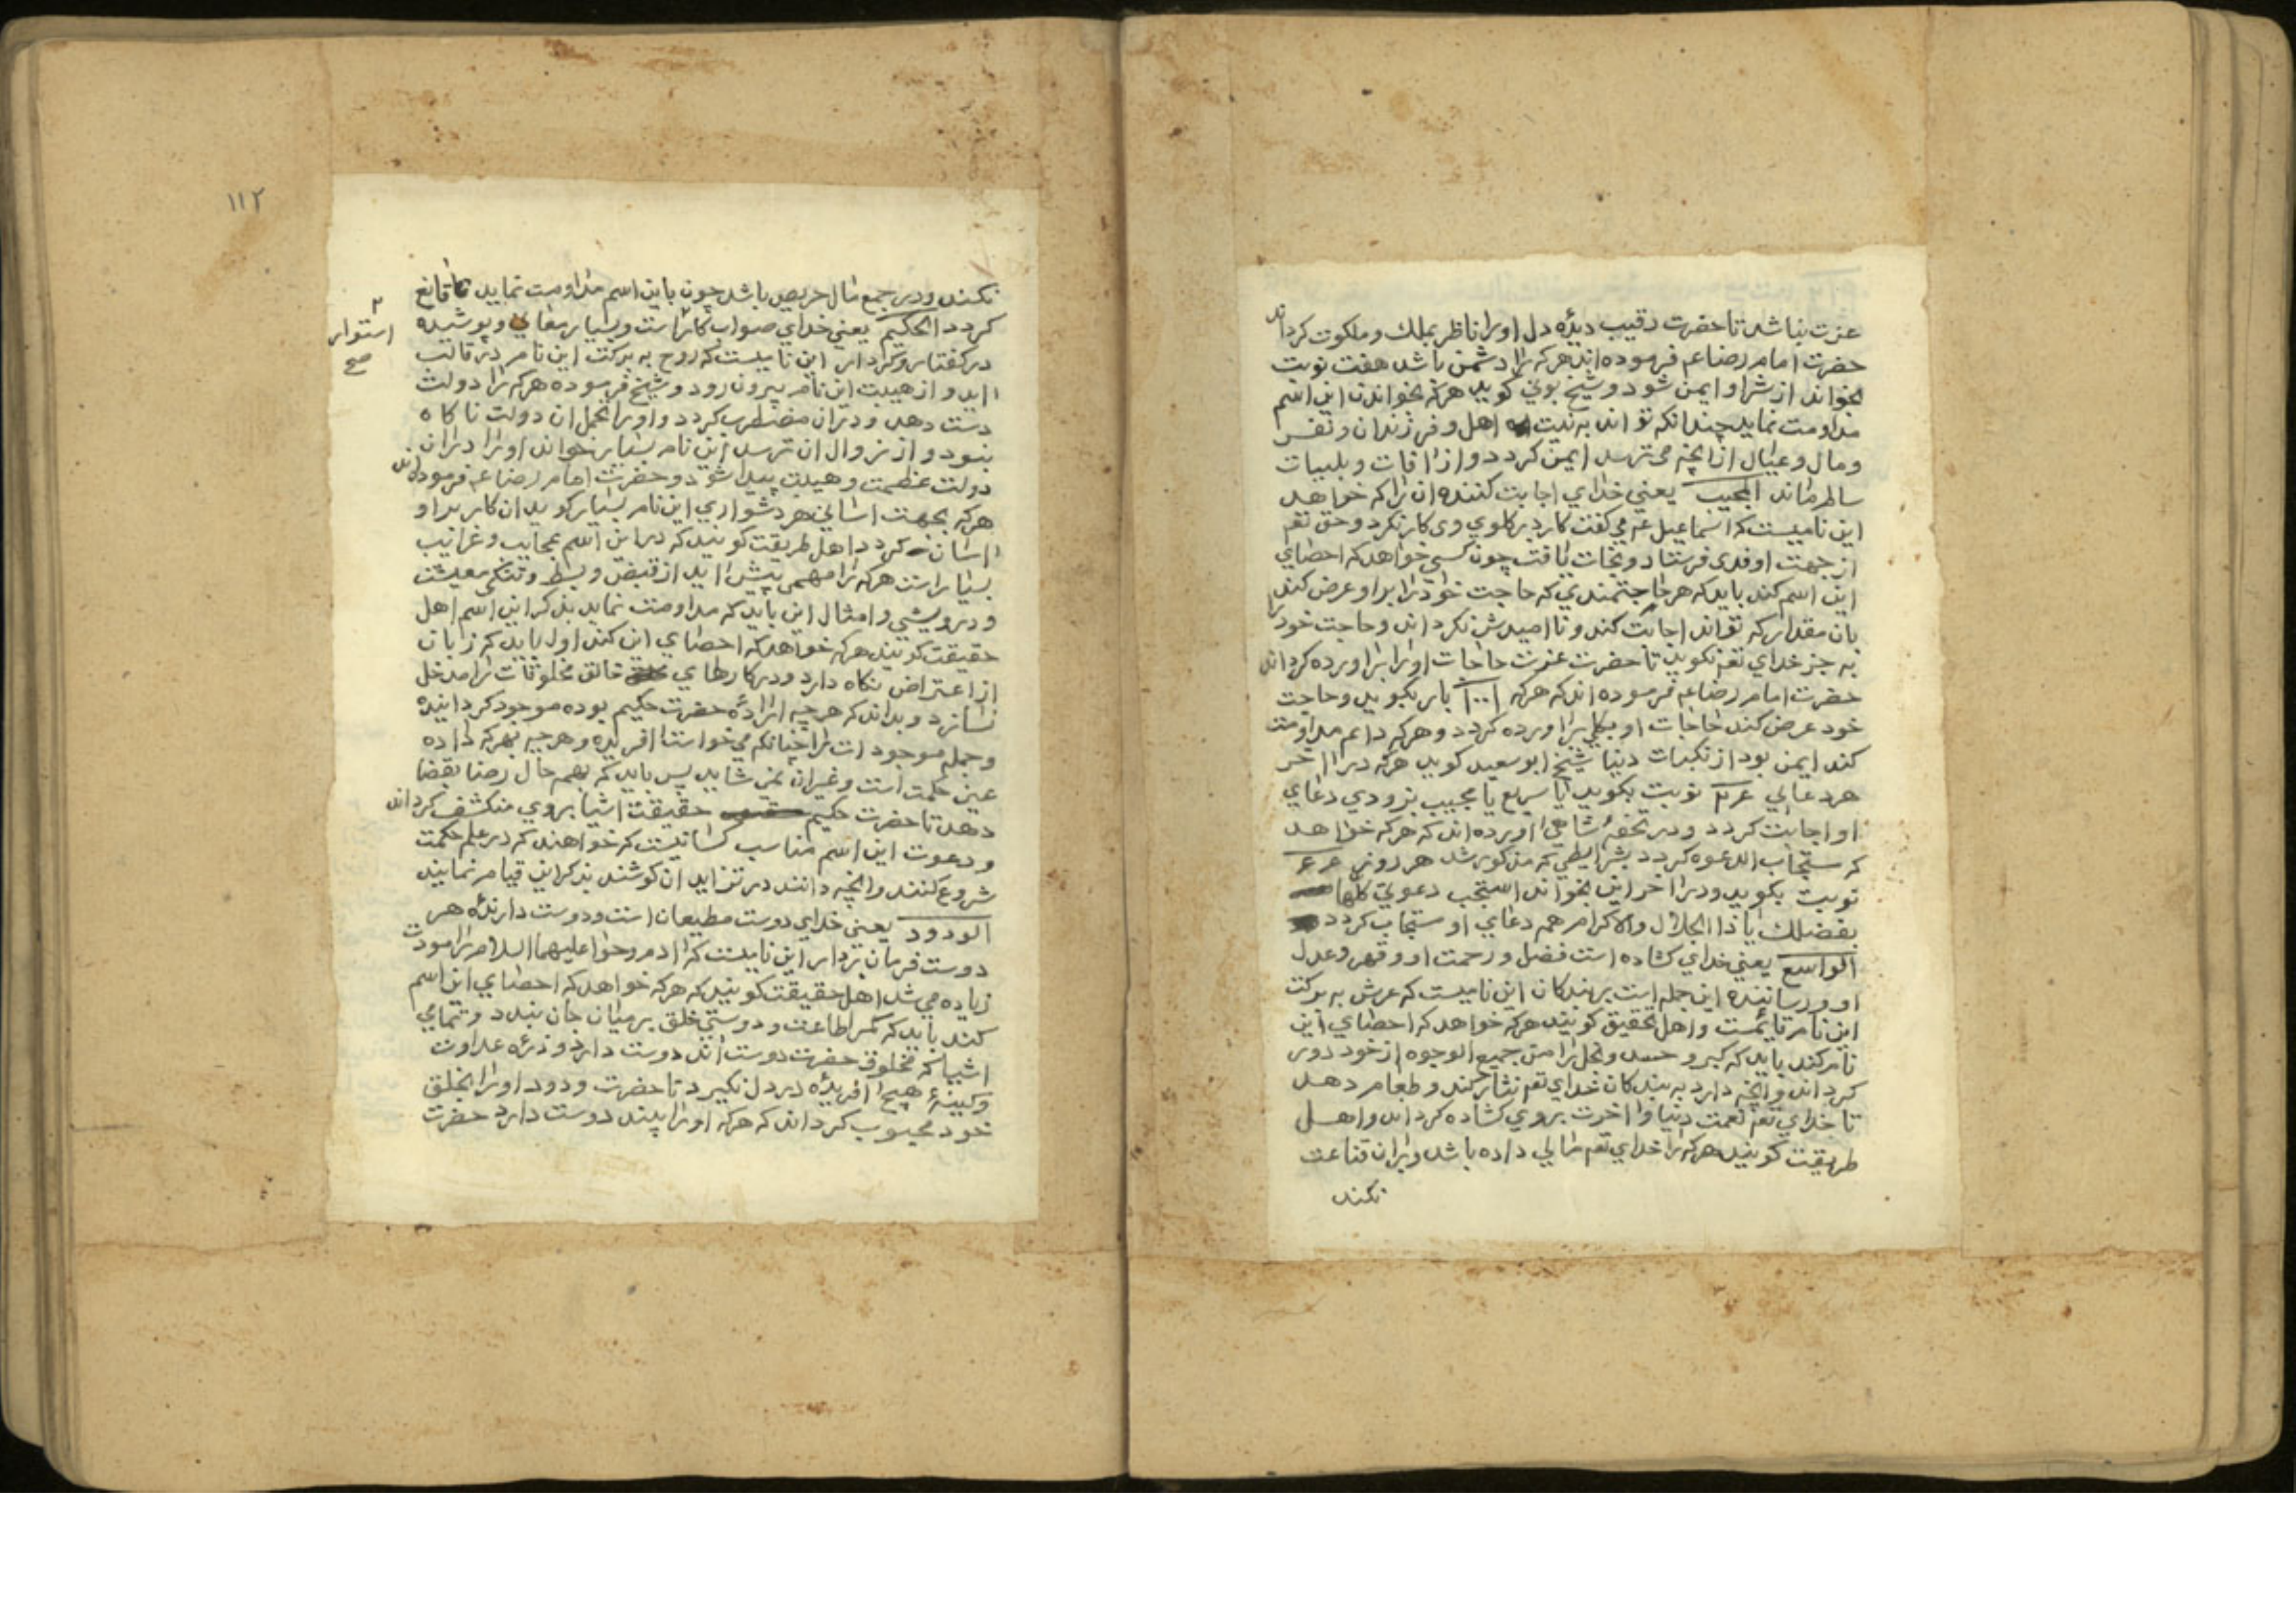 عزت نباشد تا حضرت رقیب دیدۀ دل اورا ناظر بملك و ملکوت کرداند
حضرت امام رضا عم فرموده اند هرکه را دشمن باشد هفت نوبت
بخواند از شر او ایمن شود و شیخ بونی کوید هرکه بخواندن این اسم
مداومت نماید چندانکه تواند به نیت اهل و فرزندان و نفس
و مال و عیال از انچه می ترسد ایمن کردد و از افات و بلییات
سالم ماند المجیب یعنی خدای اجابت کننده ان را که خواهد
این نامیست که اسماعیل عم می کفت کارد بر کلوی وی کار نکرد و حق تعم
از جهت او فدی فرستاد و نجات یافت چون کسی خواهد که احصای
این اسم کند باید که هر حاجتمندی که حاجت خود را بر او عرض کند
بان مقدار که تواند اجابت کند و نا امیدش نکرداند و حاجت خود را
به جز خدای تعم نکوید تا حضرت عزت حاجات اورا براورده کرداند
حضرت امام رضا عم فرموده اند که هرکه ۱۰۰۱ بار بکوید و حاجت
خود عرض کند حاجات او بکلی براورده کردد و هرکه داعم مداومت
کند ایمن بود از نکبات دنیا شیخ ابو سعید کوید هرکه در اخر
هر دعایی نوبت بکوید یا سریع یا مجیب بزودی دعای
او اجابت کردد و در تحفۀ شاهی اورده اند که هرکه خواهد
که مستجاب الدعوه کردد بشرایطی که مذکور شد هر روزی
نوبت بکوید و در اخر این بخواند استجب دعوتی کلها
بفضلك یا ذا الجلال والاکرام همه دعای او مستجاب کردد
الواسع یعنی خدای کشاده است فضل و رحمت او و قهر و عدل
او و رسانیده این جمله است بر بندکان این نامیست که عرش به برکت
این نام قایمست و اهل تحقیق کویند هرکه خواهد که احصای این
نام کند باید که کبر و حسد و بخل را من جمیع الوجوه از خود دور
کرداند و انچه دارد به بندکان خدای تعم نثار کند و طعام دهد
تا خدای تعم نعمت دنیا و اخرت بروی کشاده کرداند و اهل
طریقت کویند هرکه را خدای تعم مالی داده باشد و بران قناعت
نکند
۱۱۲
نکند و در جمع مال حریص باشد چون باین اسم مداومت نماید تا قانع
کردد الحکیم یعنی خدای صواب کار است و بسیار و پوشیده
۲
استوار
صح
در کفتار و کردار این نامیست که روح به برکت این نام در قالب
اید و از هیبت این نام بیرون رود و شیخ فرموده هرکه را دولت
دست دهد و دران مضطرب کردد و اورا تحمل ان دولت ناکاه
نبود و از زوال ان ترسد این نام بسیار خواند اورا دران
دولت عظمت و هیبت پیدا شود و حضرت امام رضا عم فرموده اند
هرکه بجهت اسانی هر دشواری این نام بسیار کوید ان کار بر او
اسان کردد اهل طریقت کویند که در این اسم عجایب و غرایب
بسیار است هرکه را مهمی پیش اید از قبض و بسط و تنکی معیشت
و درویشی و امثال این باید که مداومت نماید بذکر این اسم اهل
حقیقت کویند هرکه خواهد که احصای این کند اول باید که زبان
از اعتراض نکاه دارد و در کارهای خالق مخلوقات را مدخل
نسازد و بداند که هرچه ارادۀ حضرت حکیم بوده موجود کردانیده
و جمله موجودات را چنانکه می خواست افریده و هرچه بهرکه داده
عین حکمت است و غیر ان نمی شاید پس باید که بهمه حال رضا بقضا
دهد تا حضرت حکیم حقیقت اشیا بروی منکشف کرداند
و دعوت این اسم مناسب کسانیست که خواهند که در علم حکمت
شروع کنند و انچه دانند در تزاید ان کوشند بذکر این قیام نمایند
الودود یعنی خدای دوست مطیعان است و دوست دارندۀ هر
دوست فرمان بردار این نامیست که ادم و حوا علیهما السلام را مودت
زیاده می شد اهل حقیقت کویند که هرکه خواهد که احصای این اسم
کند باید که کمر اطاعت و دوستی خلق بر میان جان بندد و تمامی
اشیا که مخلوق حضرت دوست اند دوست دارد و ذرۀ عداوت
و کینۀ هیچ افریدۀ در دل نکیرد تا حضرت ودود اورا بخلق
خود محبوب کرداند که هرکه اورا بیند دوست دارد حضرت